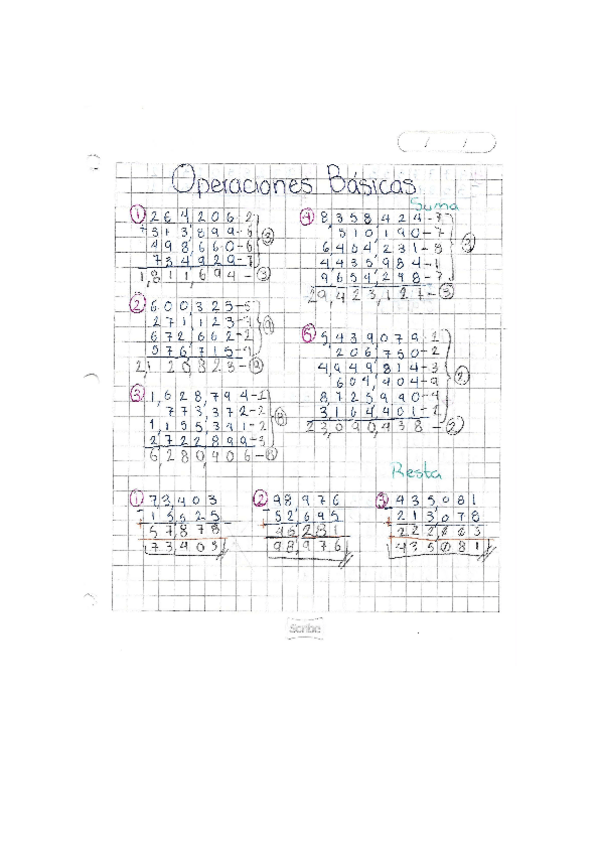 Operaciones Básicas
Suma
1 264,206-2
+313,899-6
498,660-6
734,929-7
1,811,694-3
2 600,325
271,123
672,662-2
576,715
3 1,628,794-1
773,372-2
1,155,341-2
2,722,899-3
6,280,406-8
4 8358424-7
510190-7
6,464,231-8
4,435,984-1
9,654,298-7
29,423,127-3
5 5,439,079-1
206,750-2
4,949,814-3
604,904
8,725,990-4
3,164,401-1
23,090,938-2
Resta
1 73,403
-15,525
57,878
73,403
2 98,976
-52,695
46,281
98,976
3 435,081
-213,078
222,003
435,081
Scribe